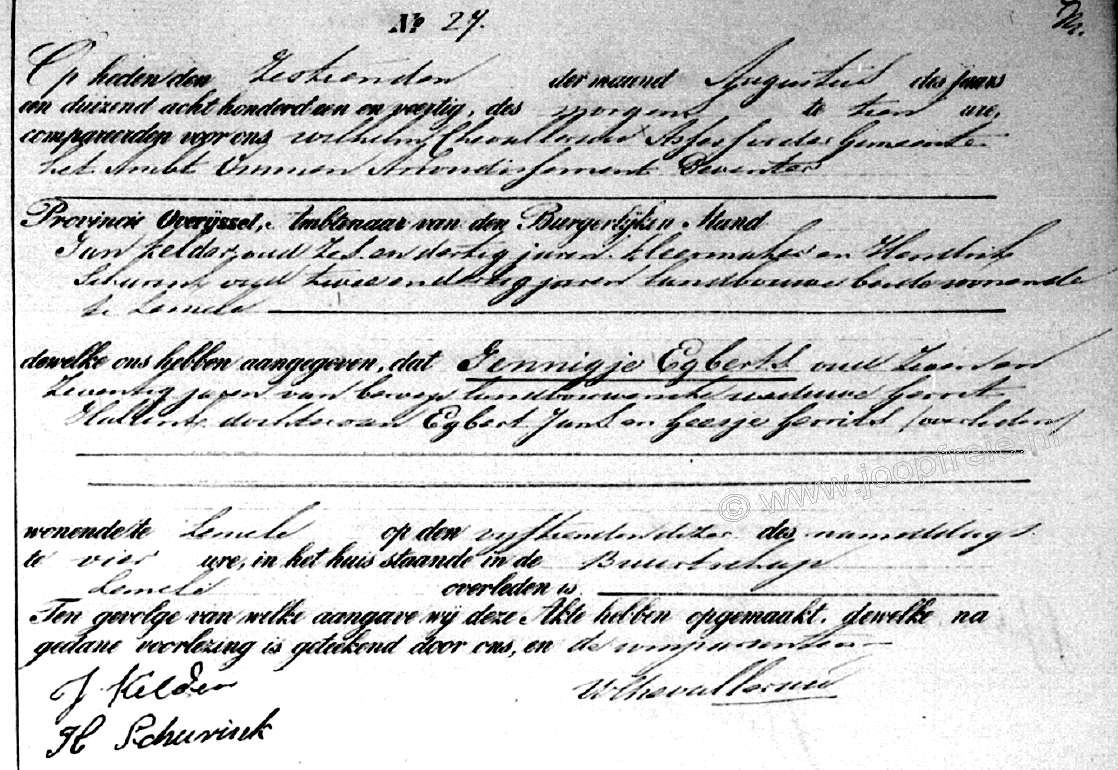 No 27.
Op heden den Zestienden der maand Augustus des jaars
een duizend acht honderd een en veertig, des morgens te tien ure,
compareerden voor ons Wilhelm Chevallerau Assessor der Gemeente
het Ambt Ommen Arrondissement Deventer
Provincie Overijssel, Ambtenaar van den Burgerlijken Stand
Jan Kelder oud Zes en dertig jaren kleermaker en Hendrik
Schurink oud twee en dertig jaren landbouwer beide wonende
te Lemele
dewelke ons hebben aangegeven, dat Jennigje Egberts oud Zeven en
Zeventig jaren van beroep landbouwersche weduwe Gerrit
dochter van Egbert Jans en Geesje Gerrits (overleden)
© www.joopfraie.nl
wonende te Lemele op den vyftienden dezer des namiddags
te vier ure, in het huis staande in de Buurtschap
Lemele overleden is
Ten gevolge van welke aangave wij deze Akte hebben opgemaakt, dewelke na
gedane voorlezing is geteekend door ons, en de comparanten
J. Kelder
H Schurink